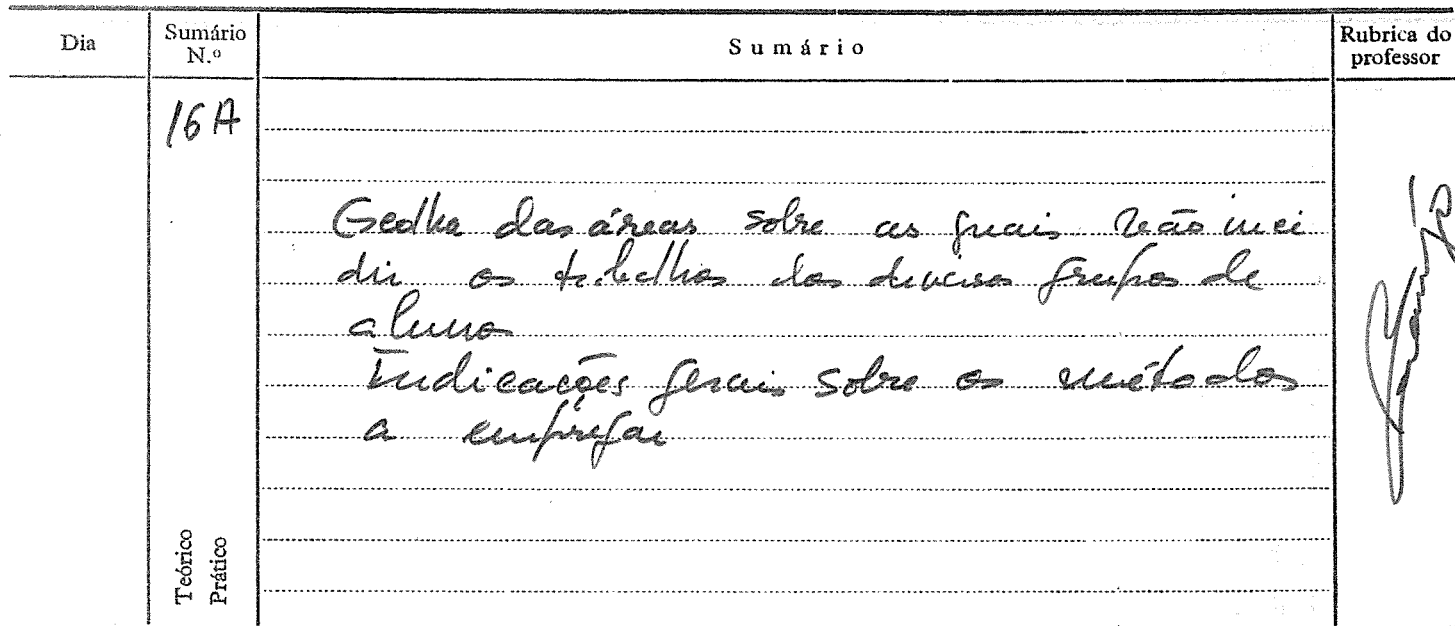 Dia
Sumário N.º
Sumário
Rubrica do professor
16A
Escolha das áreas sobre as quais irão inci
dir os trabalhos dos diversos grupos de
alunos
Indicações gerais sobre os métodos
a empregar
Teórico
Prático